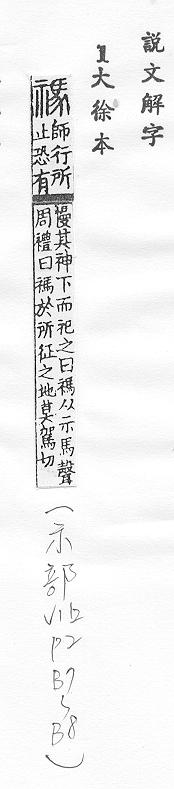 說文解字
1大徐本
禡師行所止恐有
慢其神下而祀之曰禡从示馬聲
周禮曰禡於所征之地莫駕切
(示部
V1上
P2
B7
B8)